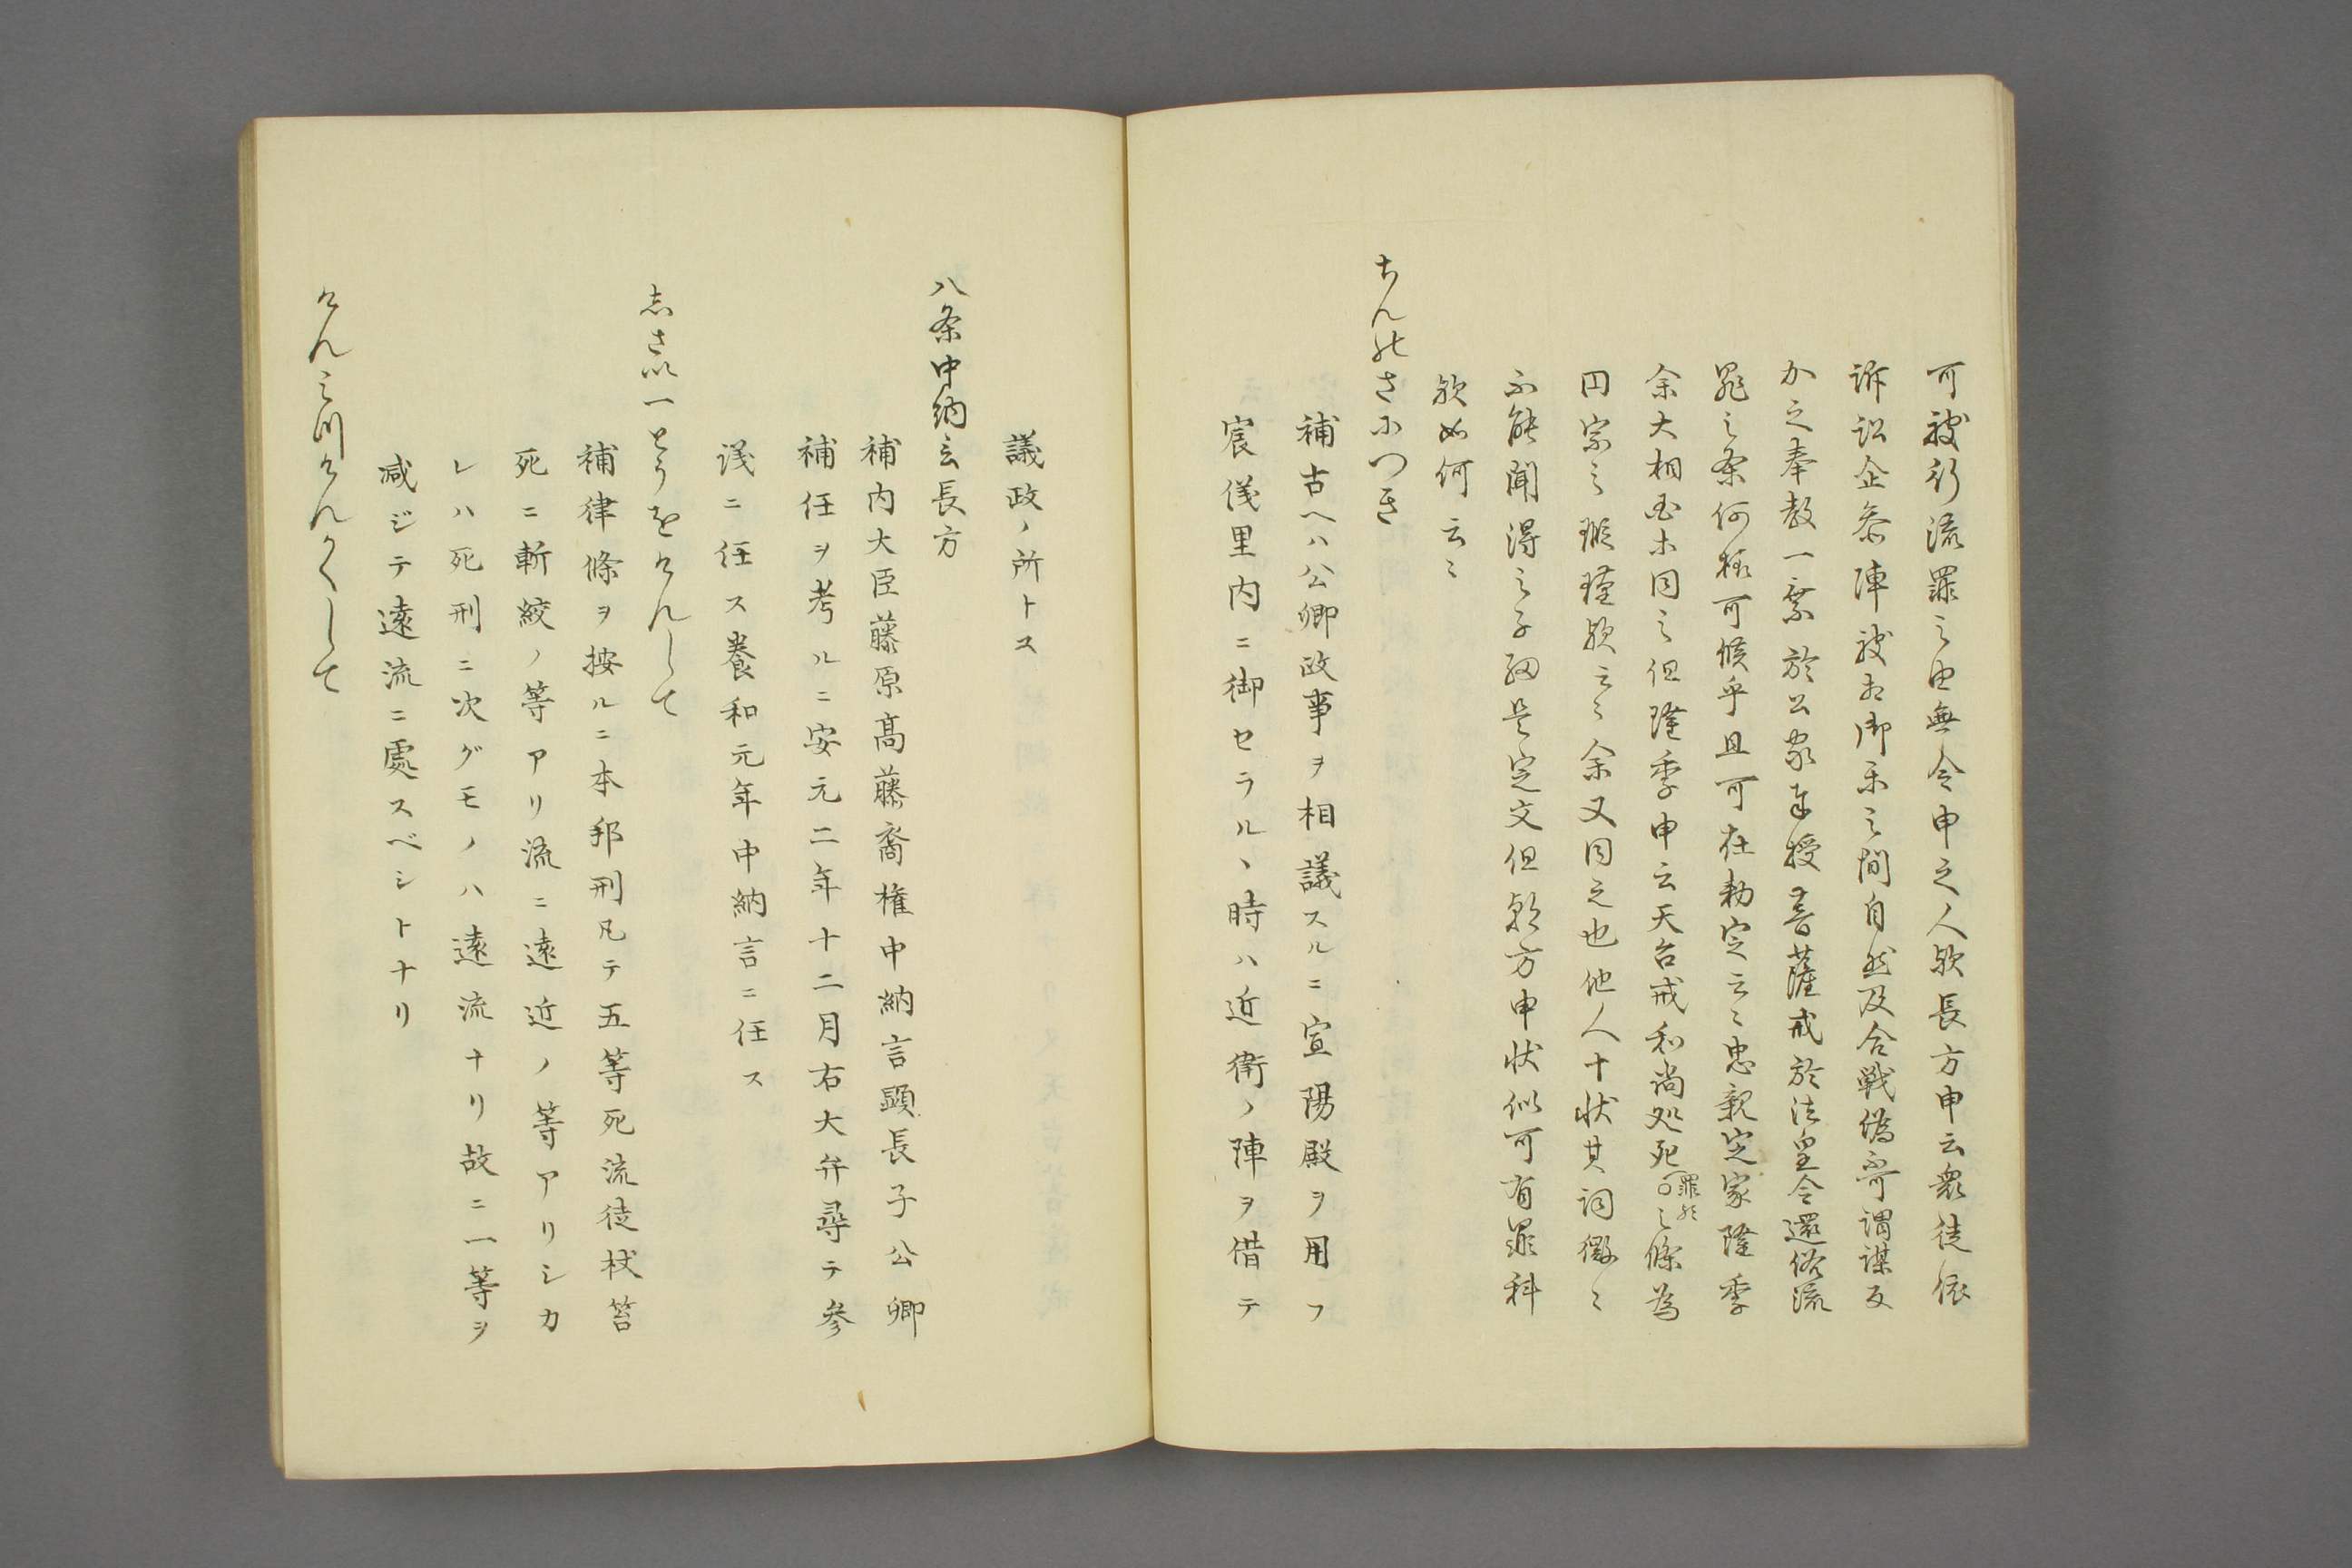 可被行流罪之由無令申之人欤長方申云衆徒依
訴訟企参陣被相御禦之間自然及合戦偽不可謂謀反
加之奉教一乗於公家奉授菩薩戒於法皇令還俗流
罪之条何様可候乎且可在勅定云々忠親定家隆季
余大相国等同之但隆季申云天台戒和尚処死罪於之條為
円宗之瑕瑾歟云々余又同之也他人十状其詞微々
不能聞得之子細是定文但朝方申状似可有罪科
欤如何云々
ちんのさにつき
補古ヘハ公卿政事ヲ相議スルニ宣陽殿ヲ用フ
宸儀里内ニ御セラルヽ時ハ近衛ノ陣ヲ借テ
議政ノ所トス
八条中納言長方
補内大臣藤原髙藤裔権中納言顕長子公卿
補任ヲ考ルニ安元二年十二月右大弁尋テ参
議ニ任ス養和元年中納言ニ任ス
志さい一とうをけんして
補律條ヲ按ルニ本邦刑凡テ五等死流徒杖笞
死ニ斬絞ノ等アリ流ニ遠近ノ等アリシカ
レハ死刑ニ次グモノハ遠流ナリ故ニ一等ヲ
減ジテ遠流ニ處スベシトナリ
けんみつけんかくして